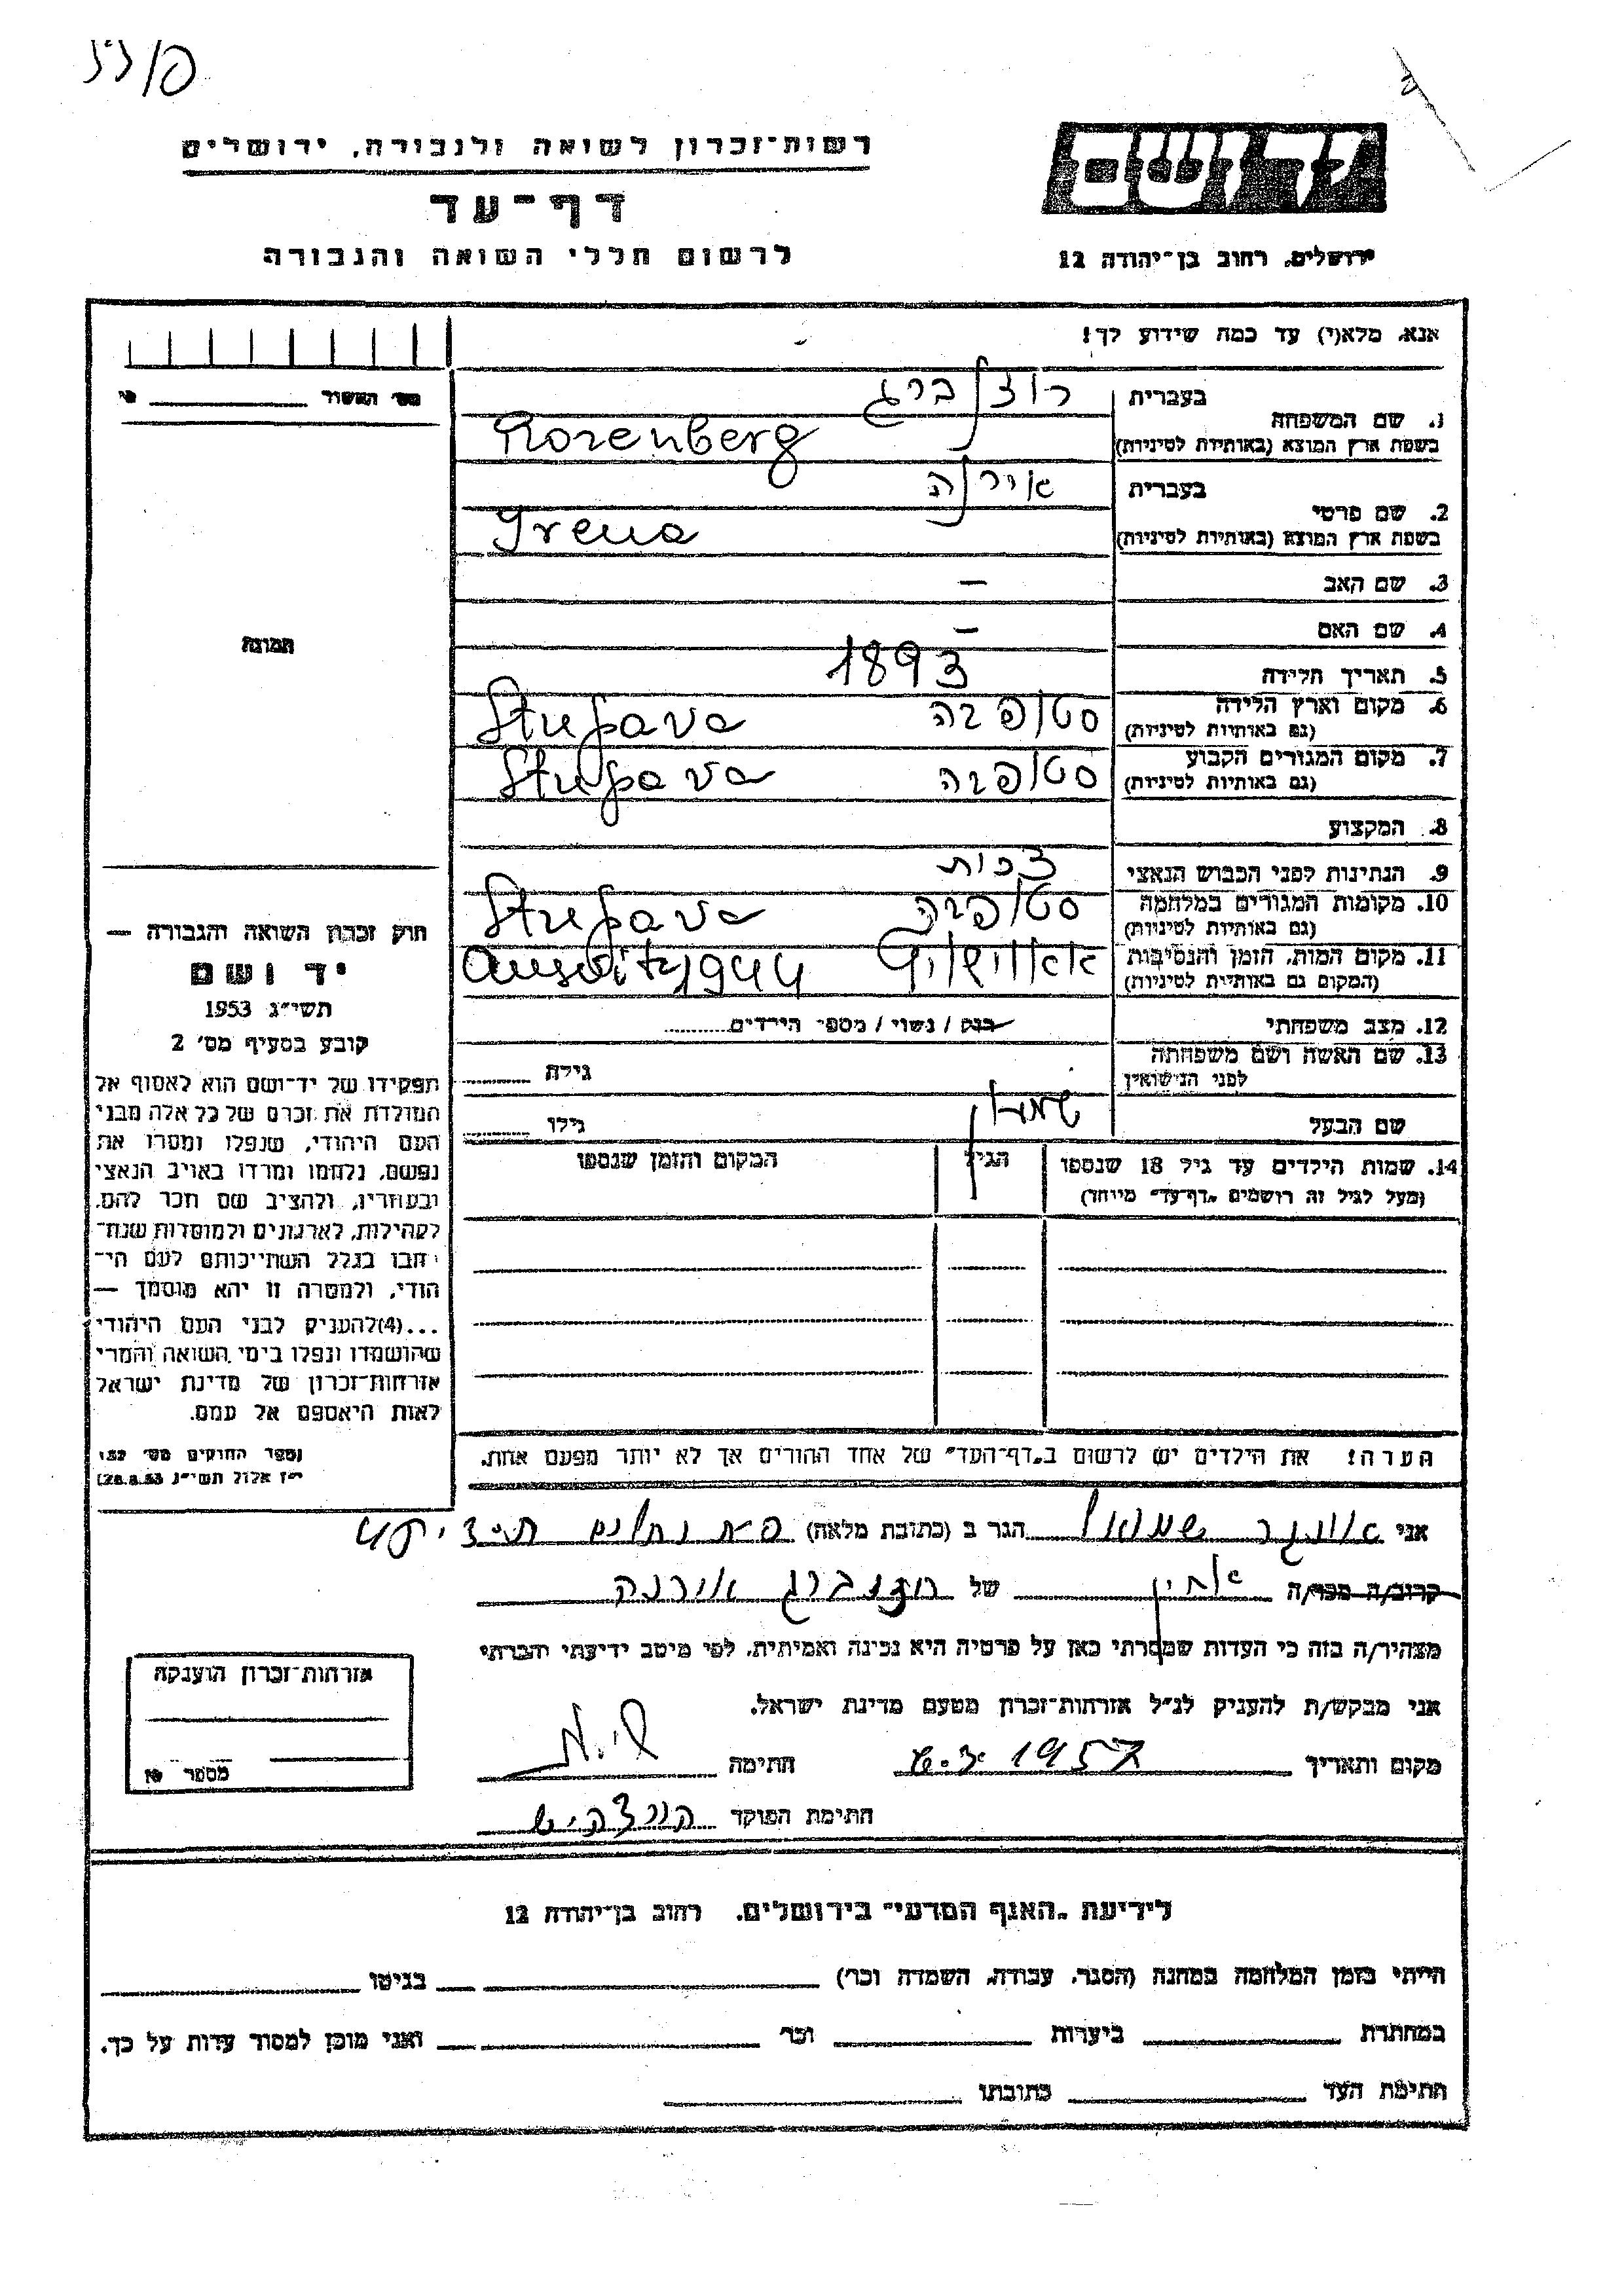 רשות־זכרון לשואה ולגבורה, ירושלים
דף־עד
לרשום חללי השואה והגבורה
יד ושם
ירושלים, רחוב בן־יהודה 12
אנא, מלא(י) עד כמה שידוע לך!
מס' האשור
1. שם המשפחה בעברית רוזנברג
בשפת ארץ המוצא (באותיות לטיניות) Rosenberg
2. שם פרטי בעברית אירנה
בשפת ארץ המוצא (באותיות לטיניות) Irena
3. שם האב –
4. שם האם –
5. תאריך הלידה 1893
6. מקום וארץ הלידה סטופבה Stupava
(גם באותיות לטיניות)
7. מקום המגורים הקבוע סטופבה Stupava
(גם באותיות לטיניות)
8. המקצוע
9. הנתינות לפני הכבוש הנאצי צכית
10. מקומות המגורים במלחמה סטופבה Stupava
(גם באותיות לטיניות)
11. מקום המות, הזמן והנסיבות 1944
(המקום גם באותיות לטיניות)
12. מצב משפחתי רווק / נשוי / מספר הילדים
13. שם האשה ושם משפחתה גילה
לפני הנישואין
שם הבעל גילו
14. שמות הילדים עד גיל 18 שנספו הגיל המקום והזמן שנספו
(מעל לגיל זה רושמים "דף־עד" מיוחד)
הערה! את הילדים יש לרשום ב"דף־העד" של אחד ההורים אך לא יותר מפעם אחת.
תמונה
חוק זכרון השואה והגבורה —
יד ושם
תשי"ג 1953
קובע בסעיף מס' 2
תפקידו של יד־ושם הוא לאסוף אל
המולדת את זכרם של כל אלה מבני
העם היהודי, שנפלו ומסרו את
נפשם, נלחמו ומרדו באויב הנאצי
ובעוזריו, ולהציב שם וזכר להם,
לקהילות, לארגונים ולמוסדות שנח־
רבו בגלל השתייכותם לעם הי־
הודי, ולמטרה זו יהא מוסמך —
...(4) להעניק לבני העם היהודי
שהושמדו ונפלו בימי השואה והמרי
אזרחות־זכרון של מדינת ישראל
לאות היאספם אל עמם.
(ספר החוקים מס' 132
י"ז אלול תשי"ג 28.8.53)
אני אונגר שמואל הגר ב (כתובת מלאה)
קרוב/ה מכר/ה אחין של רוזנברג אירנה
מצהיר/ה בזה כי העדות שמסרתי כאן על פרטיה היא נכונה ואמיתית, לפי מיטב ידיעתי והכרתי
אני מבקש/ת להעניק לנ"ל אזרחות־זכרון מטעם מדינת ישראל.
מקום ותאריך 1957 חתימה
חתימת הפוקד
אזרחות־זכרון הוענקה
מספר
לידיעת "האגף המדעי" בירושלים, רחוב בן־יהודה 12
הייתי בזמן המלחמה במחנה (הסגר, עבודה, השמדה וכו') בגיטו
במחתרת ביערות וכו' ואני מוכן למסור עדות על כך.
חתימת העד כתובתו